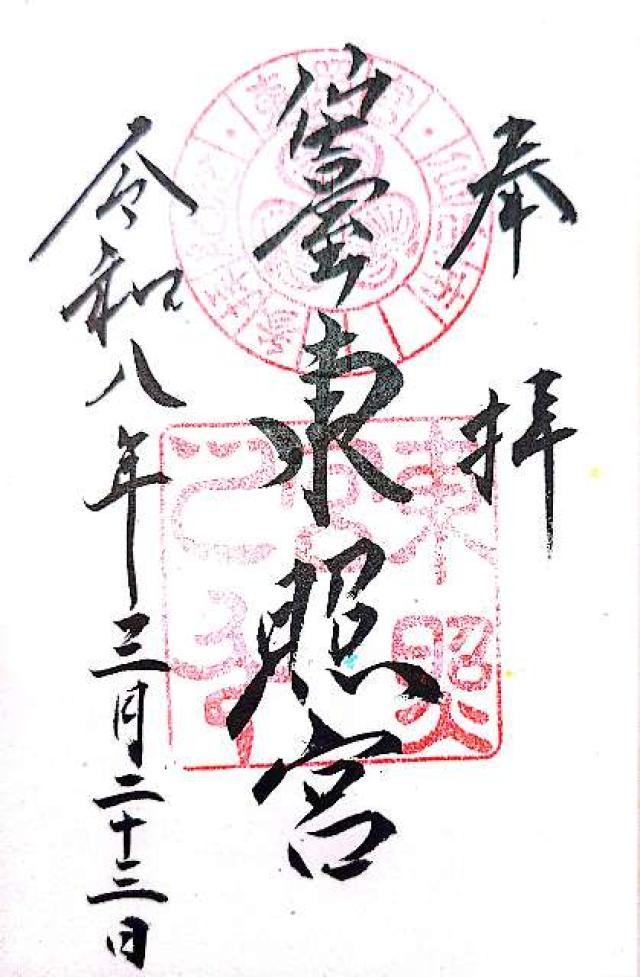 奉拝
仙臺東照宮
令和八年三月二十三日
東照